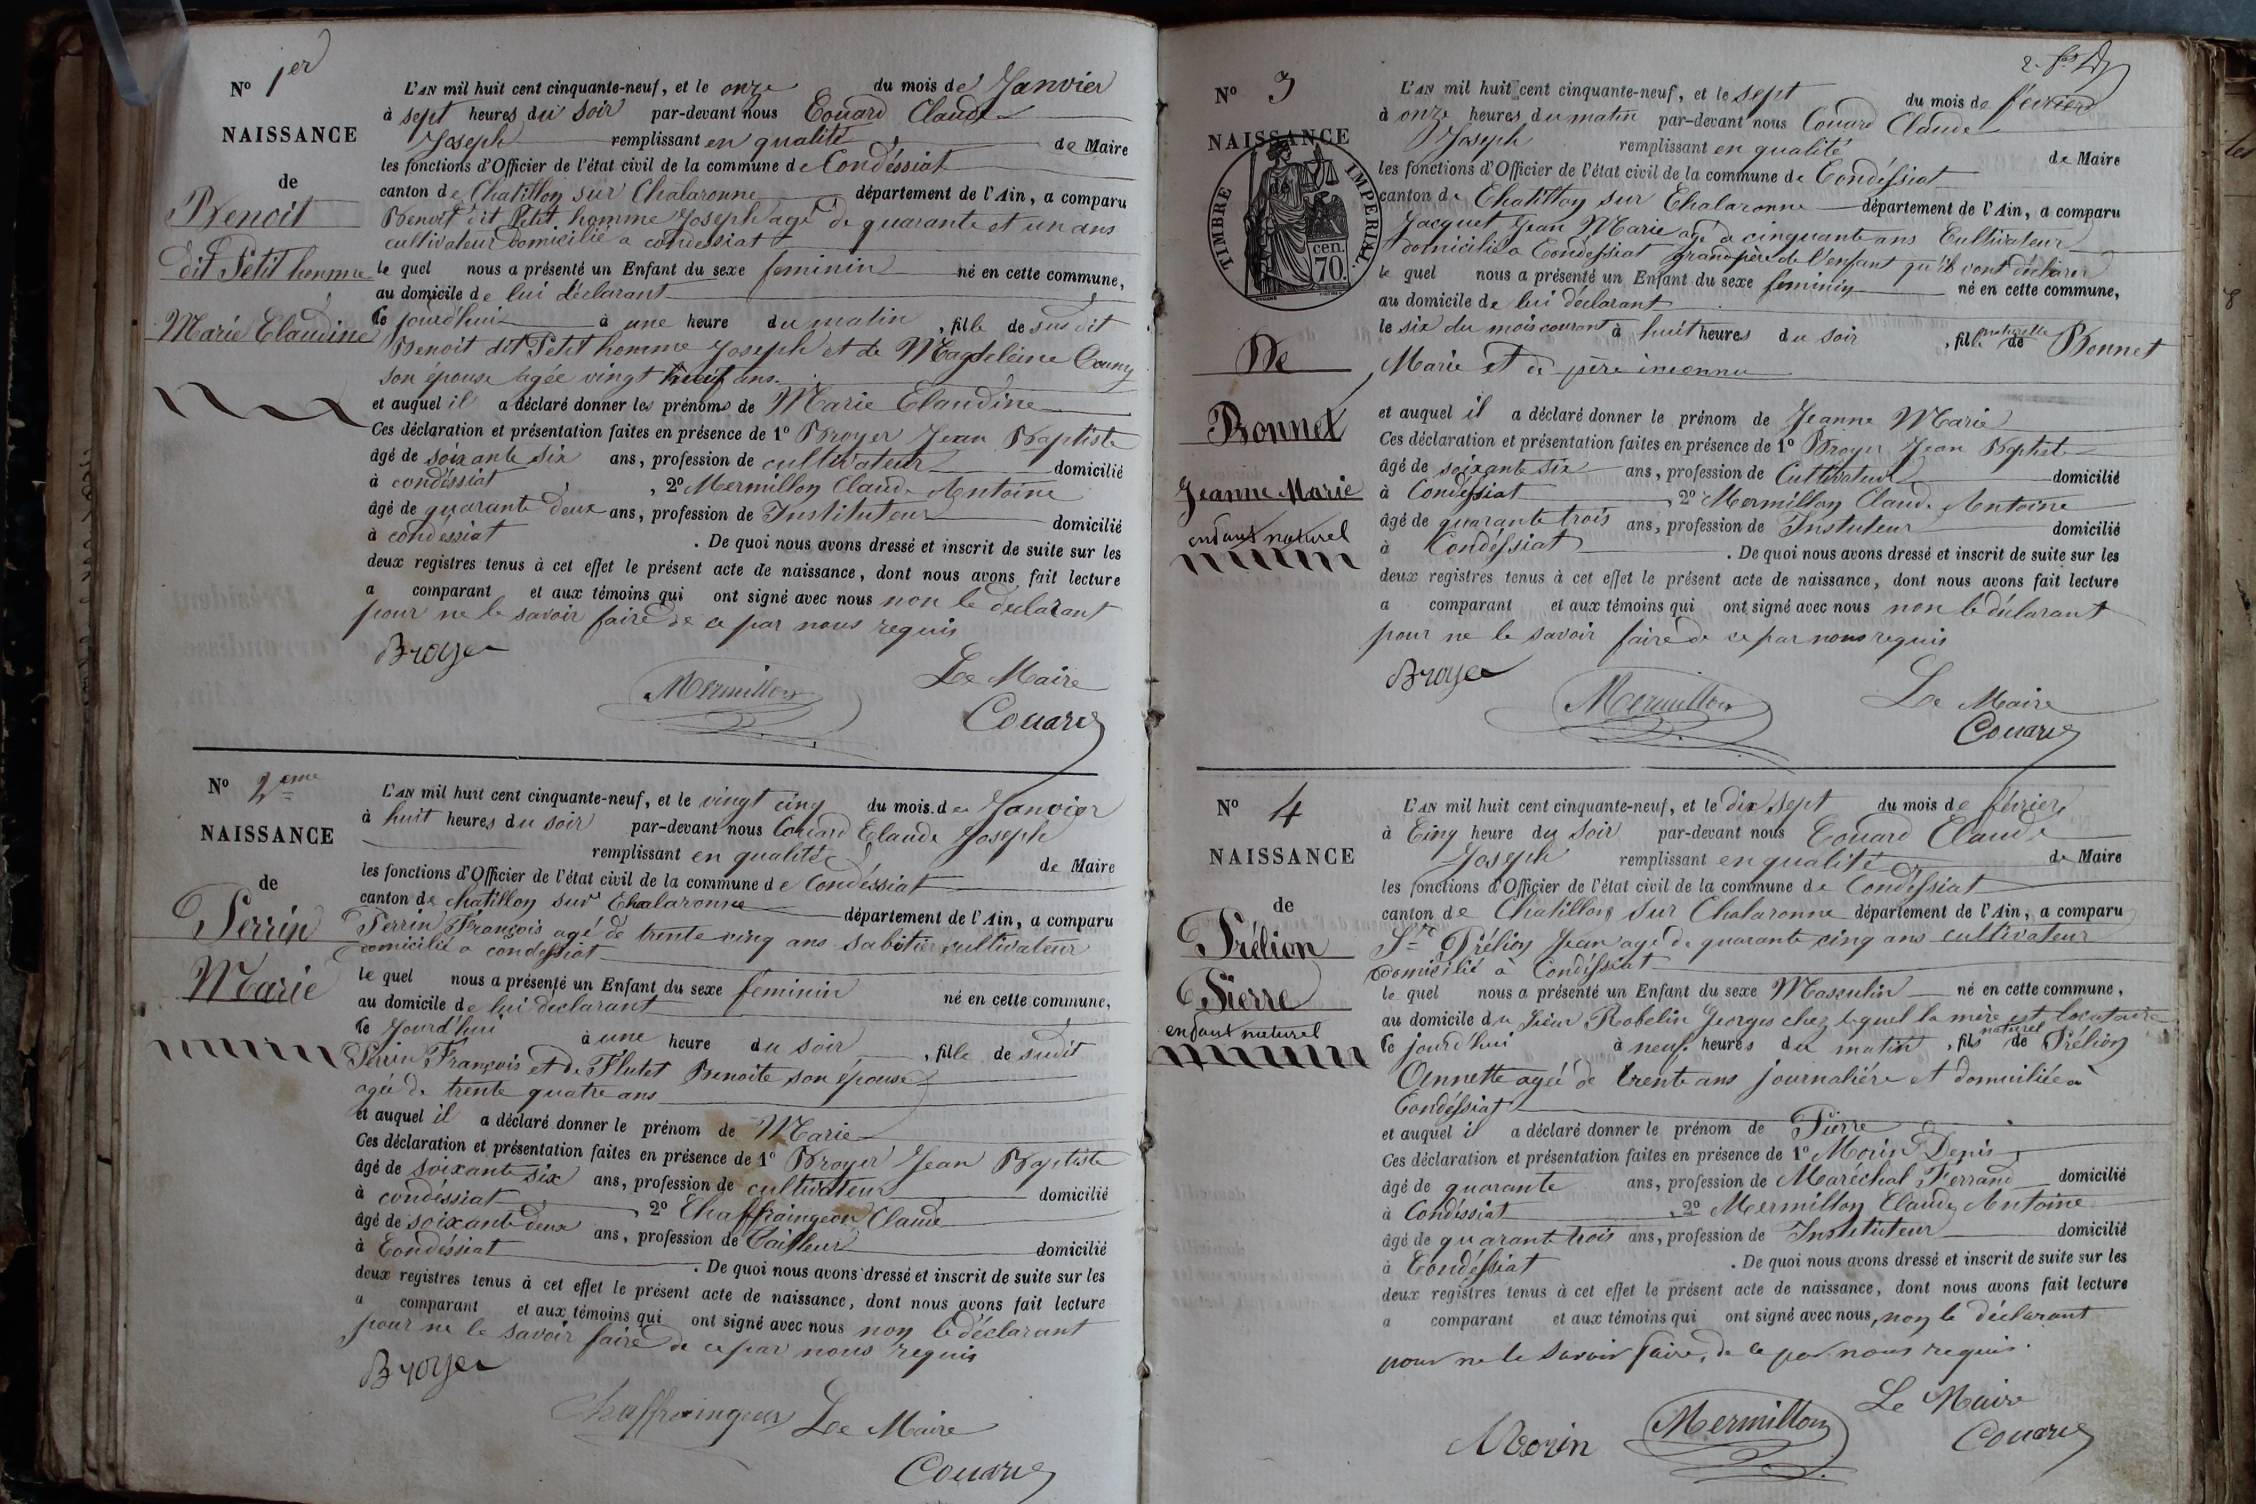 N° 1er
NAISSANCE
de
Benoit
dit Petit homme
Marie Claudine
L'AN mil huit cent cinquante-neuf, et le onze du mois de Janvier
à sept heures du soir par-devant nous Couard Claude
Joseph remplissant en qualité de Maire
les fonctions d'Officier de l'état civil de la commune de Condéssiat
canton de Chatillon sur Chalaronne département de l'Ain, a comparu
Benoit dit Petit homme Joseph agé de quarante et un ans
cultivateur domicilié a condessiat
le quel nous a présenté un Enfant du sexe feminin né en cette commune,
au domicile de lui déclarant
le jourd'hui à une heure du matin, fille de sus dit
Benoit dit Petit homme Joseph et de Magdeleine
son épouse agée vingt huit ans
et auquel il a déclaré donner les prénoms de Marie Claudine
Ces déclaration et présentation faites en présence de 1° Broyer Jean Baptiste
âgé de soixante six ans, profession de cultivateur domicilié
à condéssiat, 2° Mermillon Claude Antoine
âgé de quarante deux ans, profession de Instituteur domicilié
à condéssiat. De quoi nous avons dressé et inscrit de suite sur les
deux registres tenus à cet effet le présent acte de naissance, dont nous avons fait lecture
a comparant et aux témoins qui ont signé avec nous non le declarant
pour ne le savoir faire de ce par nous requis
Broyer
Mermillon
Le Maire
Couard
N° 2eme
NAISSANCE
de
Perrin
Marie
L'AN mil huit cent cinquante-neuf, et le vingt cinq du mois de Janvier
à huit heures du soir par-devant nous Couard Claude Joseph
remplissant en qualité de Maire
les fonctions d'Officier de l'état civil de la commune de Condéssiat
canton de chatillon sur Chalaronne département de l'Ain, a comparu
Perrin François agé de trente cinq ans sabotier cultivateur
domicilié a condessiat
le quel nous a présenté un Enfant du sexe feminin né en cette commune,
au domicile de lui declarant
le jourd'hui à une heure du soir, fille de sudit
Perrin François et de Flutet Benoite son épouse
agée de trente quatre ans
et auquel il a déclaré donner le prénom de Marie
Ces déclaration et présentation faites en présence de 1° Broyer Jean Baptiste
âgé de soixante six ans, profession de cultivateur domicilié
à condéssiat, 2° Chaffraingeon Claude
âgé de soixante deux ans, profession de Tailleur domicilié
à Condéssiat. De quoi nous avons dressé et inscrit de suite sur les
deux registres tenus à cet effet le présent acte de naissance, dont nous avons fait lecture
a comparant et aux témoins qui ont signé avec nous non le déclarant
pour ne le savoir faire de ce par nous requis
Broyer
Chaffraingeon
Le Maire
Couard
N° 3
NAISSANCE
de
TIMBRE IMPERIAL
70 cen.
De
Bonnet
Jeanne Marie
enfant naturel
L'AN mil huit cent cinquante-neuf, et le sept du mois de février
à onze heures du matin par-devant nous Couard Claude
Joseph remplissant en qualité de Maire
les fonctions d'Officier de l'état civil de la commune de Condéssiat
canton de Chatillon sur Chalaronne département de l'Ain, a comparu
Jacquet Jean Marie agé de cinquante ans Cultivateur
domicilié a Condessiat grandpère de l'enfant qu'il vont déclarer
le quel nous a présenté un Enfant du sexe feminin né en cette commune,
au domicile de lui déclarant
le six du mois courant à huit heures du soir, fille naturelle de Bonnet
Marie et de père inconnu
et auquel il a déclaré donner le prénom de Jeanne Marie
Ces déclaration et présentation faites en présence de 1° Broyer Jean Baptiste
âgé de soixante six ans, profession de Cultivateur domicilié
à Condessiat, 2° Mermillon Claude Antoine
âgé de quarante trois ans, profession de Instituteur domicilié
à Condéssiat. De quoi nous avons dressé et inscrit de suite sur les
deux registres tenus à cet effet le présent acte de naissance, dont nous avons fait lecture
a comparant et aux témoins qui ont signé avec nous non le déclarant
pour ne le savoir faire de ce par nous requis
Broyer
Mermillon
Le Maire
Couard
N° 4
NAISSANCE
de
Prélion
Pierre
enfant naturel
L'AN mil huit cent cinquante-neuf, et le dix sept du mois de février
à Cinq heure du soir par-devant nous Couard Claude
Joseph remplissant en qualité de Maire
les fonctions d'Officier de l'état civil de la commune de Condéssiat
canton de Chatillon sur Chalaronne département de l'Ain, a comparu
Prélion Jean agé de quarante cinq ans cultivateur
domicilié à Condéssiat
le quel nous a présenté un Enfant du sexe Masculin né en cette commune,
au domicile du sieur Robelin Georges chez lequel la mère est locataire
le jourd'hui à neuf heures du matin, fils naturel de Prélion
Annette agée de trente ans journalière et domiciliée à
Condéssiat
et auquel il a déclaré donner le prénom de Pierre
Ces déclaration et présentation faites en présence de 1° Morin Denis
âgé de quarante ans, profession de Maréchal Ferrand domicilié
à Condéssiat, 2° Mermillon Claude Antoine
âgé de quarante trois ans, profession de Instituteur domicilié
à Condéssiat. De quoi nous avons dressé et inscrit de suite sur les
deux registres tenus à cet effet le présent acte de naissance, dont nous avons fait lecture
a comparant et aux témoins qui ont signé avec nous, non le déclarant
pour ne le savoir faire, de ce par nous requis.
Morin
Mermillon
Le Maire
Couard